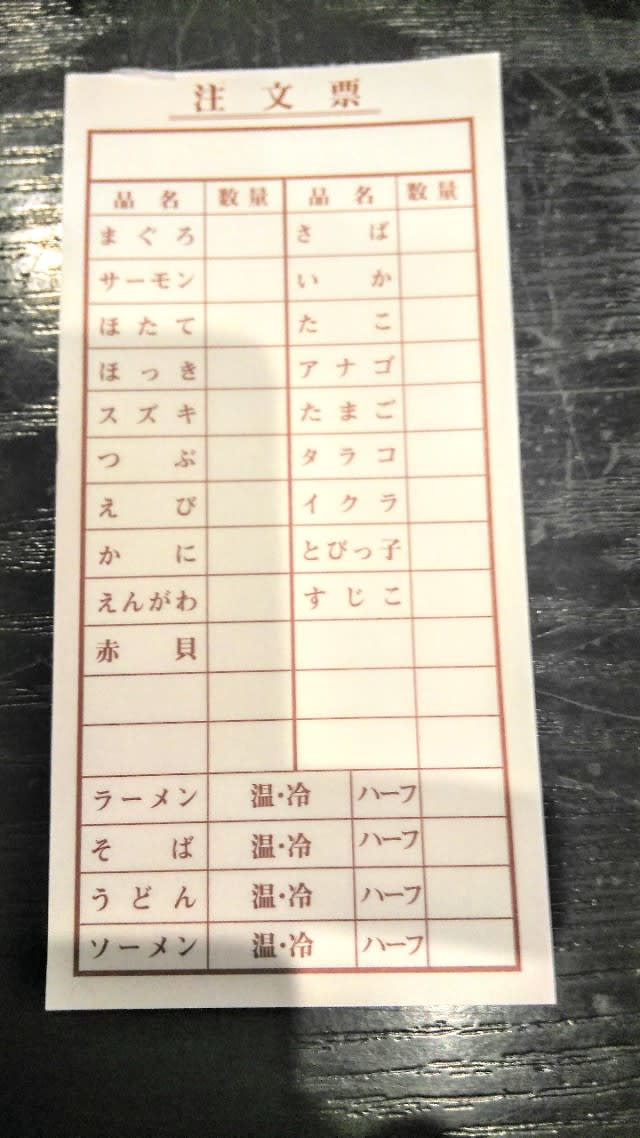 注文票
品名 数量 品名 数量
まぐろ さば
サーモン いか
ほたて たこ
ほっき アナゴ
スズキ たまご
つぶ タラコ
えび イクラ
かに とびっ子
えんがわ すじこ
赤貝
ラーメン 温・冷 ハーフ
そば 温・冷 ハーフ
うどん 温・冷 ハーフ
ソーメン 温・冷 ハーフ